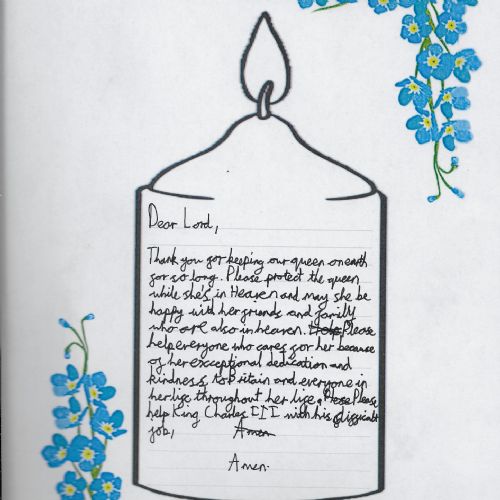 Dear Lord,
Thank you for keeping our queen on earth
for so long. Please protect the queen
while she's in Heaven and may she be
happy with her friends and family
who are also in heaven. Please
help everyone who cares for her because
of her exceptional dedication and
kindness to Britain and everyone in
her life throughout her life. Please
help King Charles III with his difficult
job,
Amen.